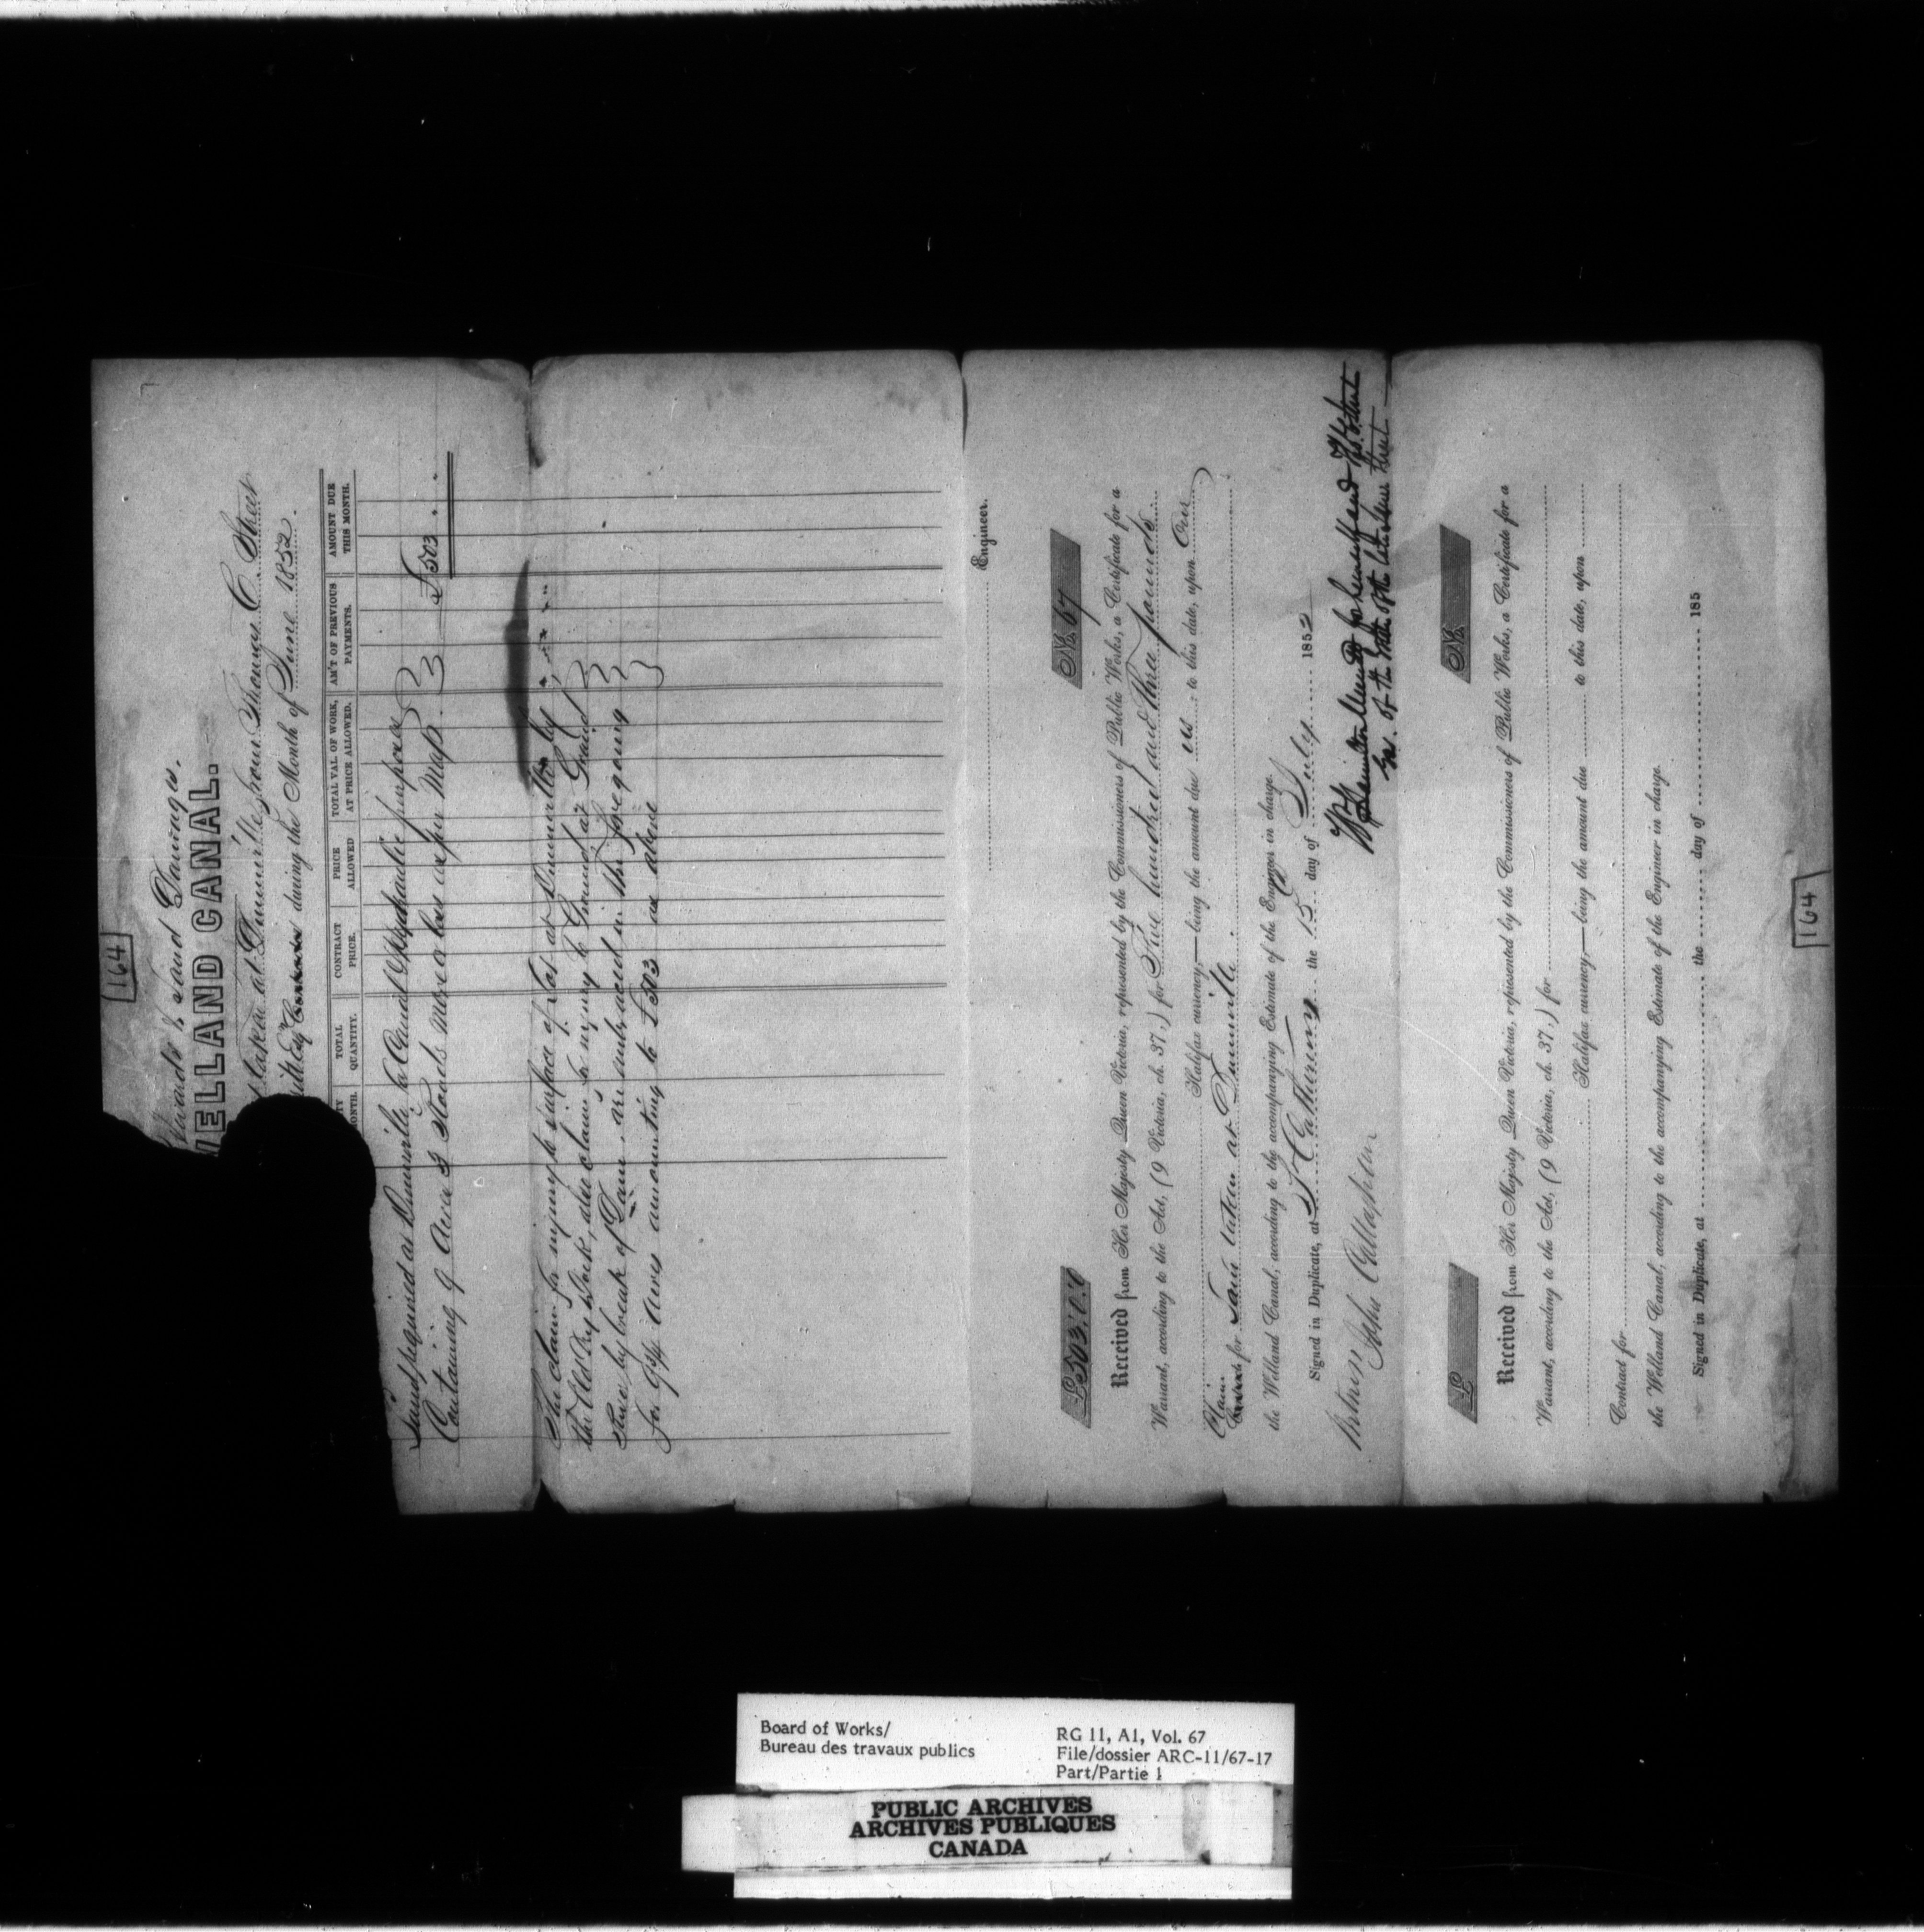 164
Awards & Land Damages.
WELLAND CANAL.
taken at Dunnville from Thomas C. Street
Contract during the Month of June 1852.
TOTAL QUANTITY.
CONTRACT PRICE.
PRICE ALLOWED
TOTAL VAL. OF WORK, AT PRICE ALLOWED.
AM'T OF PREVIOUS PAYMENTS.
AMOUNT DUE THIS MONTH.
Land required at Dunnville for Canal & Hydraulic purposes
Containing 9 Acres 3 Roods more or less as per Map. £503 . .
The claim for injury to surface of Lot at Dunnville by
the Old Dry Dock, also claim for injury to Ground at Grand
River by break of Dam, are embraced in the foregoing
for 9 3/4 Acres amounting to £503 as above
Engineer.
£503.0.0 No. 67
Received from Her Majesty Queen Victoria, represented by the Commissioners of Public Works, a Certificate for a
Warrant, according to the Act, (9 Victoria, ch. 37,) for Five hundred and three pounds
Halifax currency,—being the amount due us to this date, upon our
Claim
Contract for Land taken at Dunnville.
the Welland Canal, according to the accompanying Estimate of the Engineer in charge.
Signed in Duplicate, at St Catherines the 15 day of July 1852
John Callaghan
£ No.
Received from Her Majesty Queen Victoria, represented by the Commissioners of Public Works, a Certificate for a
Warrant, according to the Act, (9 Victoria, ch. 37,) for
Halifax currency,—being the amount due to this date, upon
Contract for
the Welland Canal, according to the accompanying Estimate of the Engineer in charge.
Signed in Duplicate, at the day of 185
164
Board of Works/
Bureau des travaux publics
RG 11, A1, Vol. 67
File/dossier ARC-11/67-17
Part/Partie 1
PUBLIC ARCHIVES
ARCHIVES PUBLIQUES
CANADA